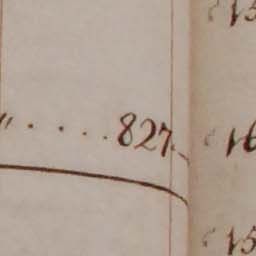 15
" . . . . 827.
16
15